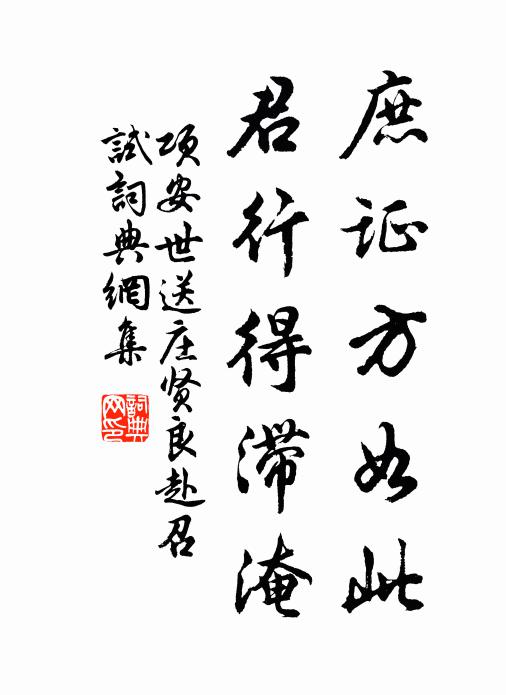 庶证方如此
君行得滞淹
项安世送庄贤良赴召
試詞典網集
詞典
网印